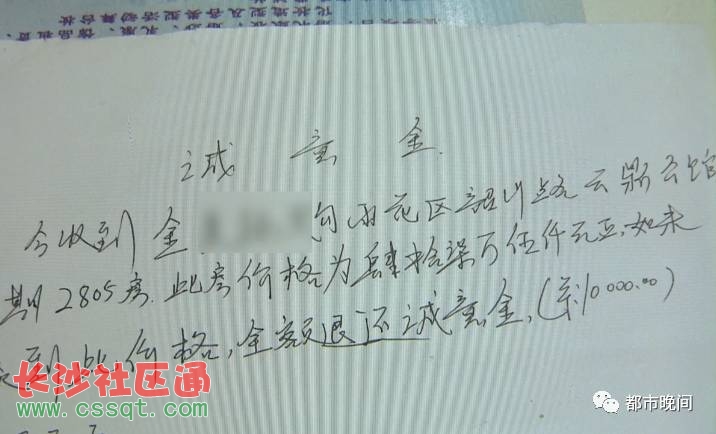 诚 意 金
今收到 金 雨花区韶山路云鼎公馆
期 2805房. 此房价格为肆拾柒万伍仟元正, 如未
到此价格, 全额退还诚意金, (¥:10000.00)
长沙社区通
www.cssqt.com
都市晚间